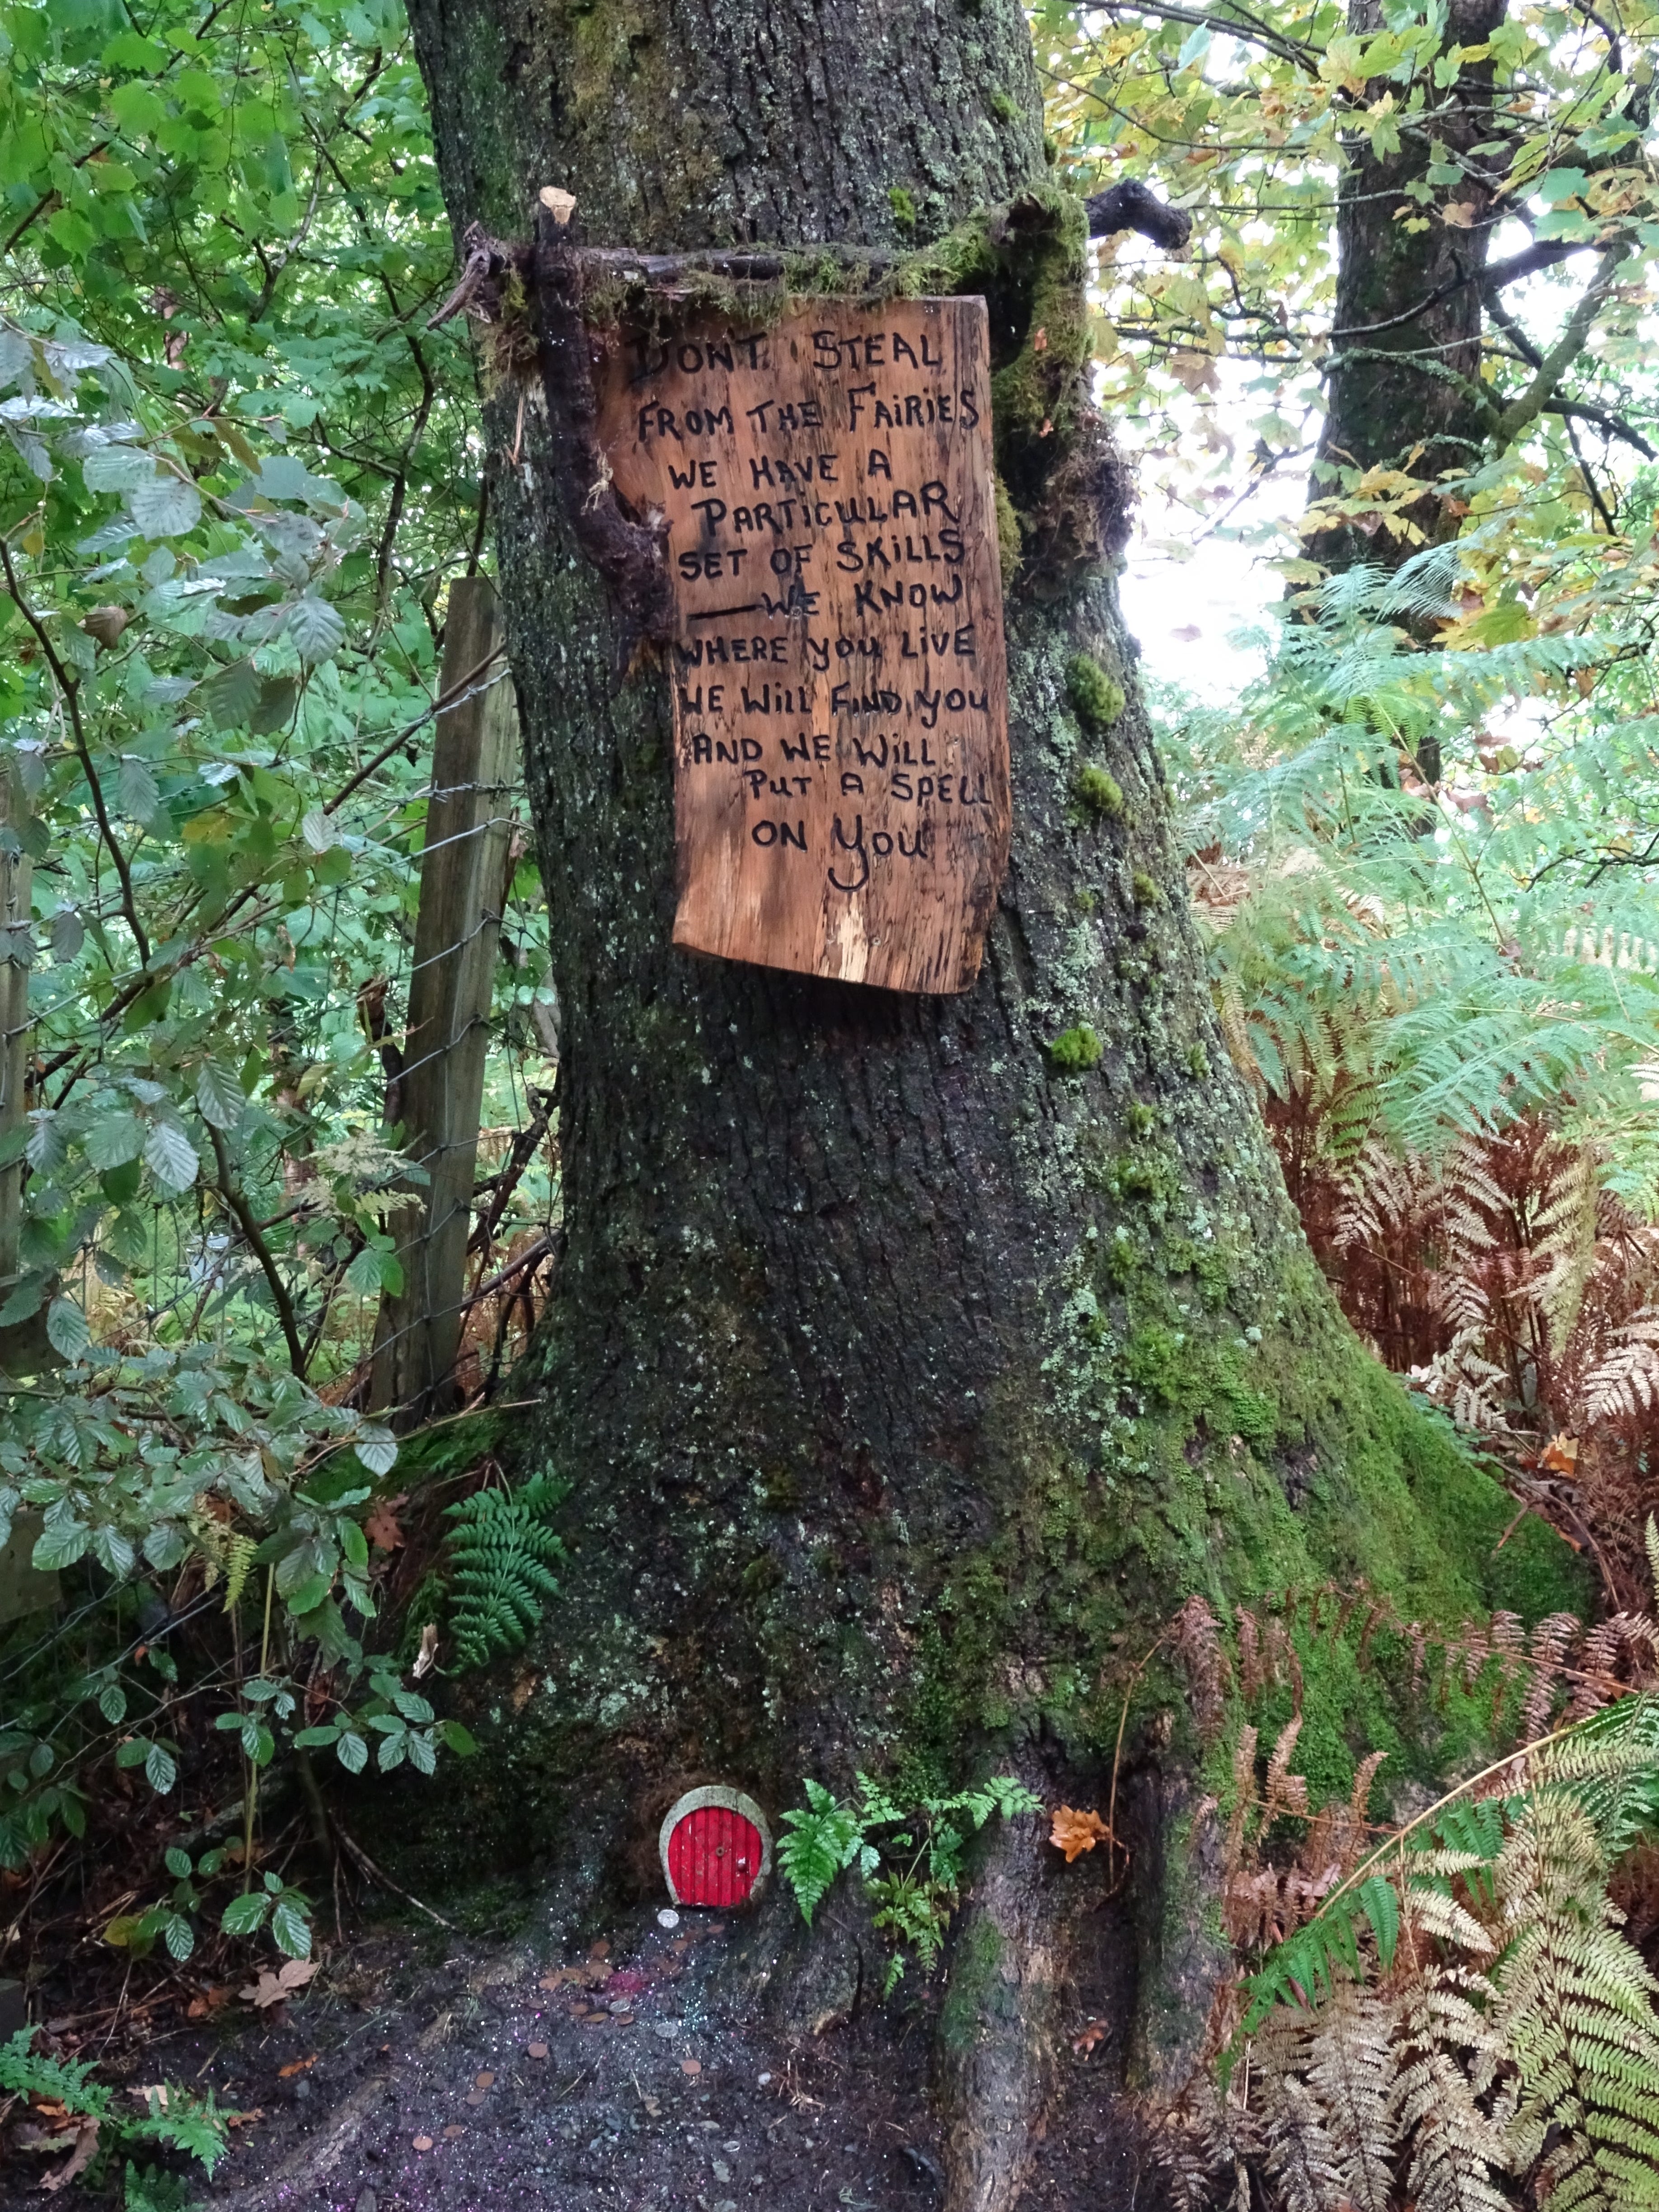 DON'T STEAL
FROM THE FAIRIES
WE HAVE A
PARTICULAR
SET OF SKILLS
—WE KNOW
WHERE YOU LIVE
WE WILL FIND YOU
AND WE WILL
PUT A SPELL
ON YOU